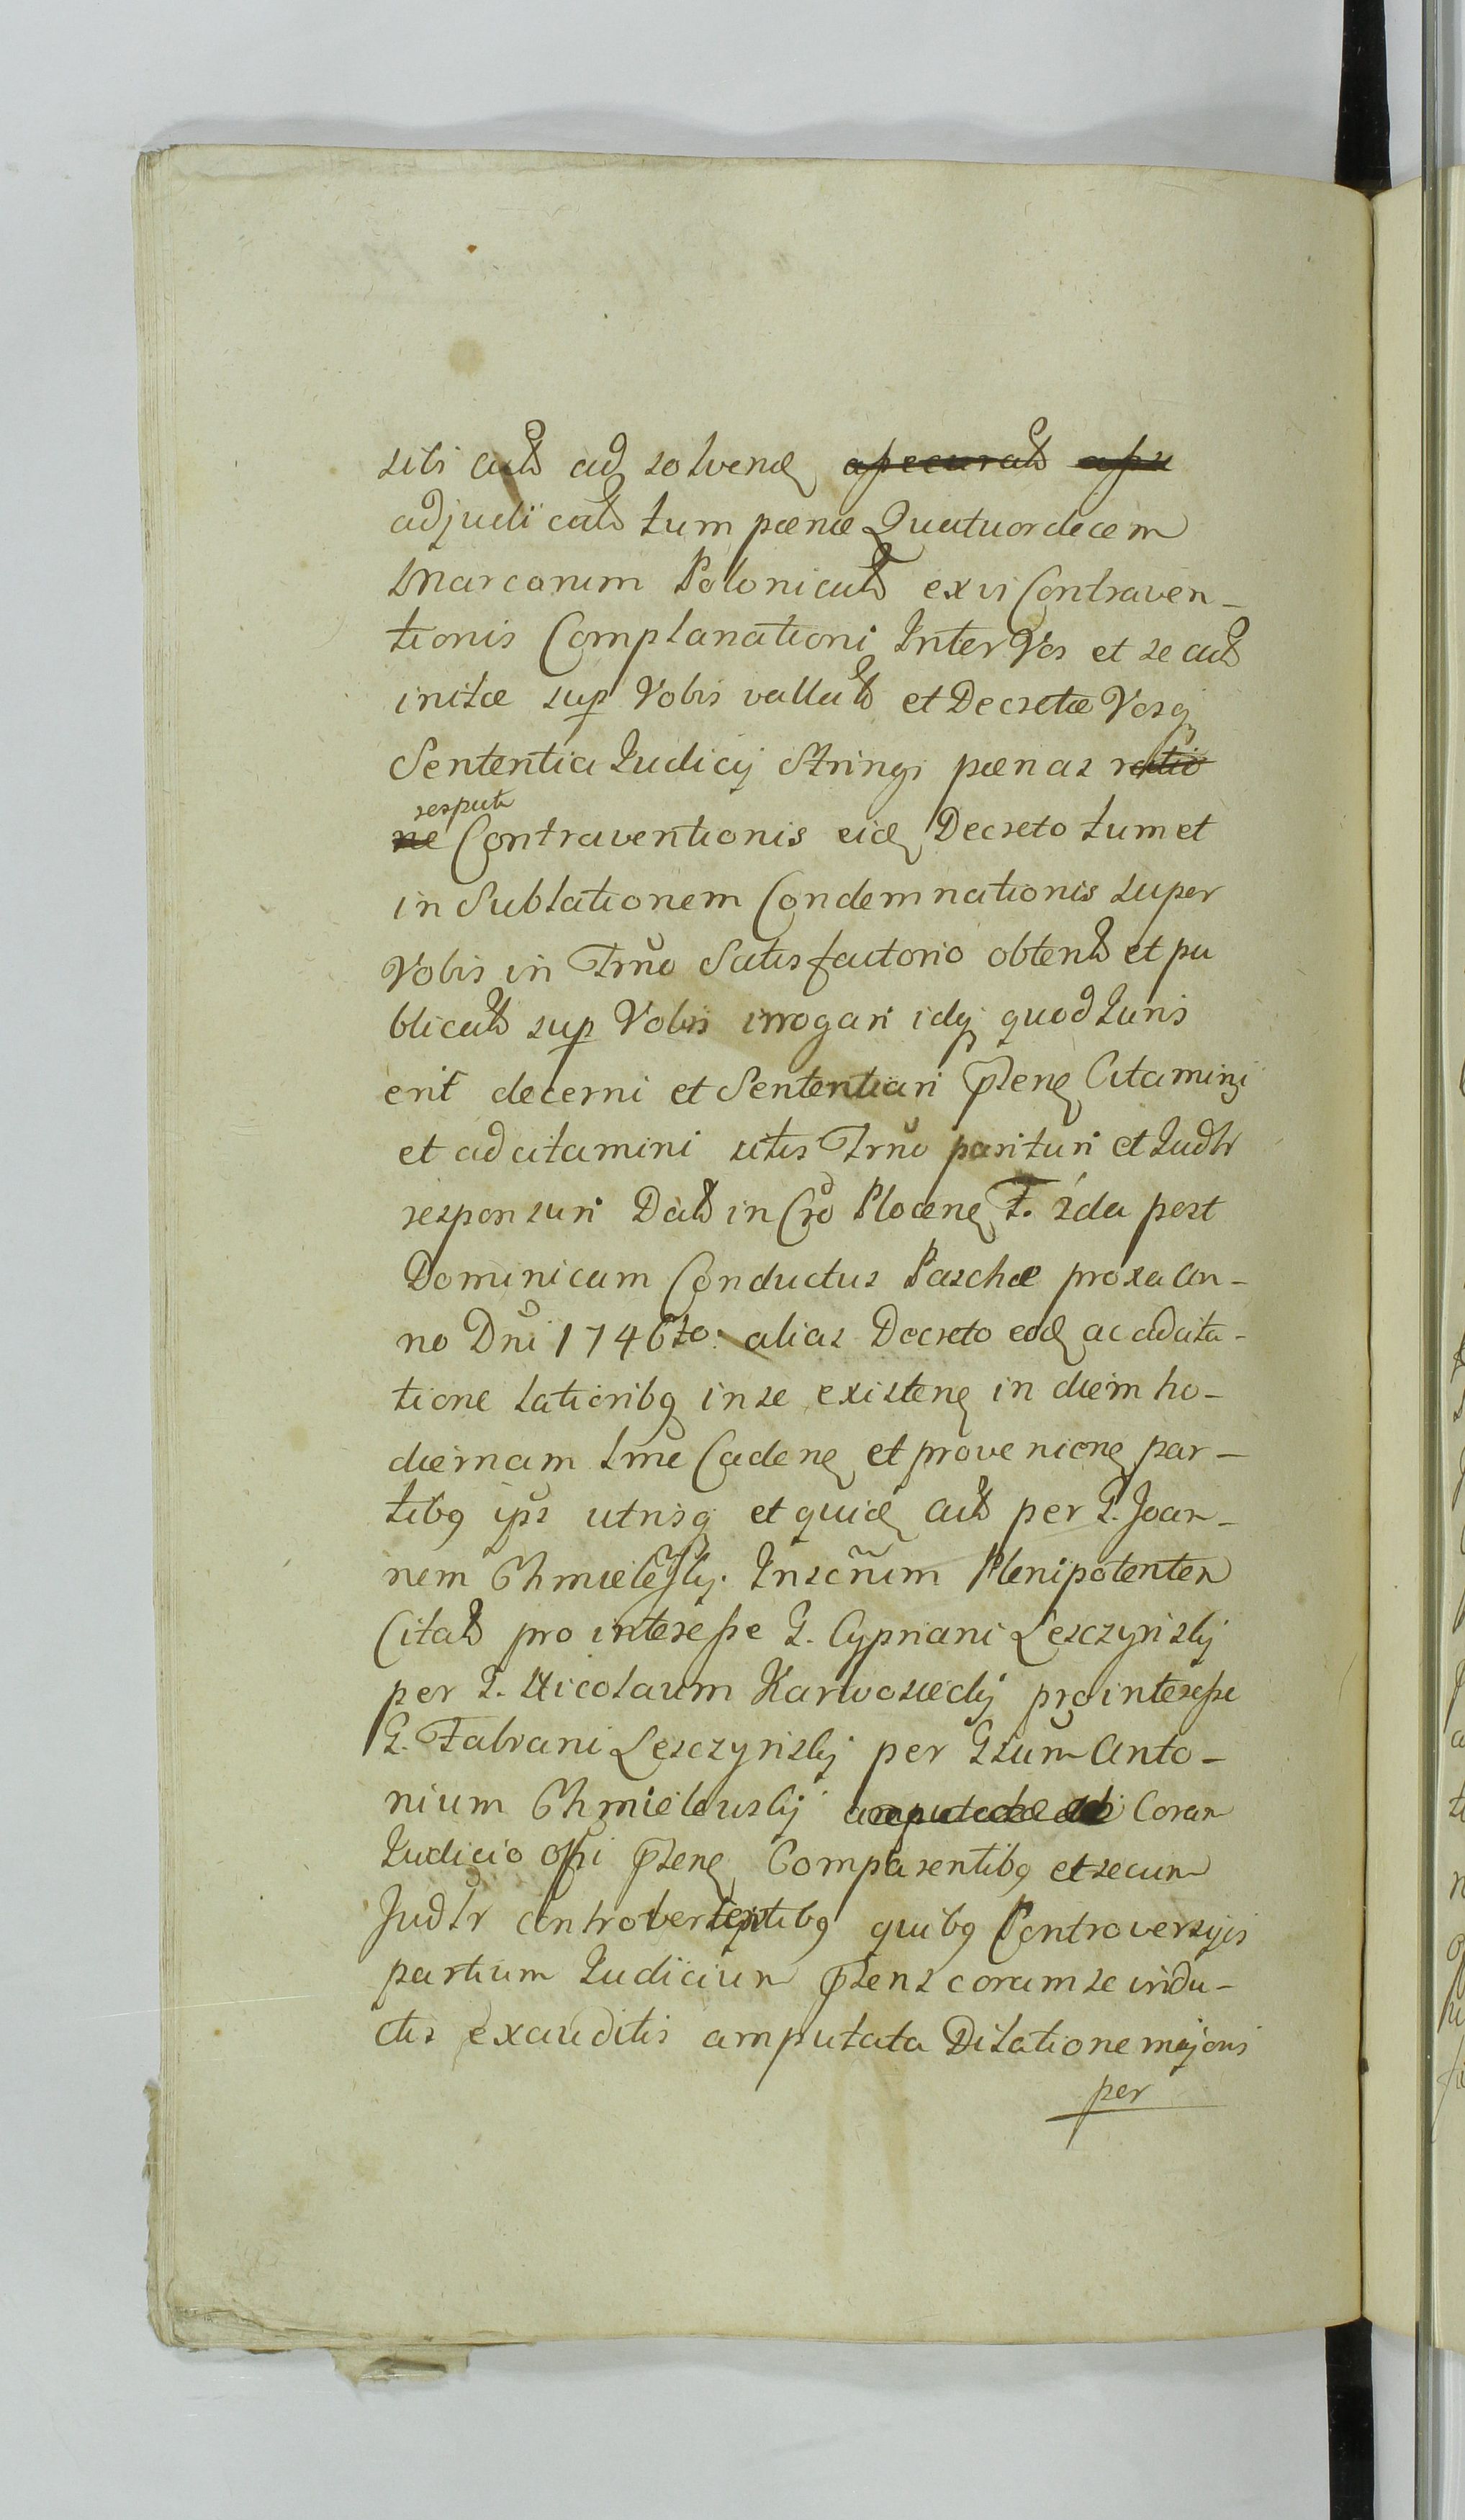 sibi actt ad solvend assecuratt assu
adjudicatt tum pænæ Quatuordecem
Marcarum Polonicatt ex vi Contraven-
tionis Complanationi Inter Vos et se actt
initæ sup Vobis vallatt et Decretæ Vosq
Sententia Iudicij Stringi pænas ratio
respectu
ne Contraventionis eid Decreto tum et
in Sublationem Condemnationis super
Vobis in Trno Satisfactorio obtentt et pu
blicatt sup Vobis irrogari idq quod Iuris
erit decerni et Sententiari pñsens Citamini
et adcitamini sitis Trno parituri et Iudtr
responsuri Datt in Cro Plocens F. 2da post
Dominicam Conductus Paschæ proxa An-
no Dni 1746to: alias Decreto eod ac adcita-
tione latioribq in se existens in diem ho-
diernam lme Cadens et proveniens par-
tibq ipis utrisq et quid actt per G. Joan-
nem Chmielesky. Inscñum Plenipotentem
Citatt pro interesse G. Cypriani Lesczynskij
per G. Nicolaum Karwosiedij pro interesse
G. Fabiani Lesczynskij per Gsum Anto-
nium Chmielewskij amputata Coram
Iudicio offi pñsens Comparentibq et secum
Judtr controvertentibq quibq Controversijs
partium Iudicium pñsens coram se indu-
ctis exauditis amputata Dilatione majori
per